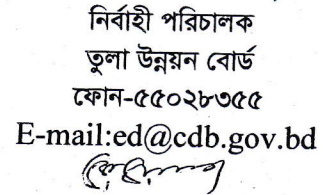 নির্বাহী পরিচালক
তুলা উন্নয়ন বোর্ড
ফোন-৫৫০২৮৩৫৫
E-mail:ed@cdb.gov.bd